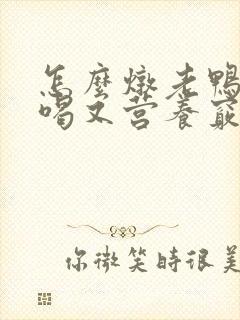 怎麼燉老鴨
喝又营養
你微笑時很美